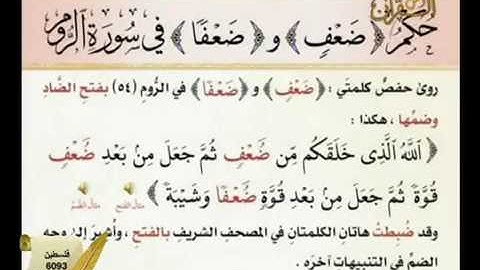 حُكْمُ ﴿ضَعْفٍ﴾ وَ ﴿ضَعْفًا﴾ في سُورَةِ الرُّوم
روىٰ حفصٌ كلمتَي : ﴿ضَعْفٍ﴾ و ﴿ضَعْفًا﴾ في الرُّومِ (٥٤) بِفتحِ الضَّادِ
وضمِّها ، هكذا :
﴿ اللَّهُ الَّذِى خَلَقَكُم مِّن ضُعْفٍ ثُمَّ جَعَلَ مِنۢ بَعْدِ ضُعْفٍ
قُوَّةً ثُمَّ جَعَلَ مِنۢ بَعْدِ قُوَّةٍ ضُعْفًا وَشَيْبَةً ﴾ مثال الفتح مثال الضم
وقد ضُبِطتْ هاتانِ الكلمتانِ في المصحفِ الشريفِ بالفتحِ ، وأُشيرَ
الضمِّ في التنبيهاتِ آخرَه .
فلسطين
6093